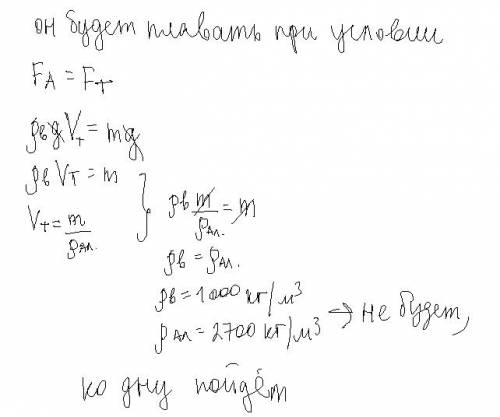 он будет плавать при условии
F_A = F_т
ρв g V_т = mg
ρв V_т = m
V_т = m/ρ_ал.
ρв m/ρ_ал. = m
ρв = ρ_ал.
ρв = 1000 кг/м³
ρ_ал = 2700 кг/м³ → не будет,
ко дну пойдём